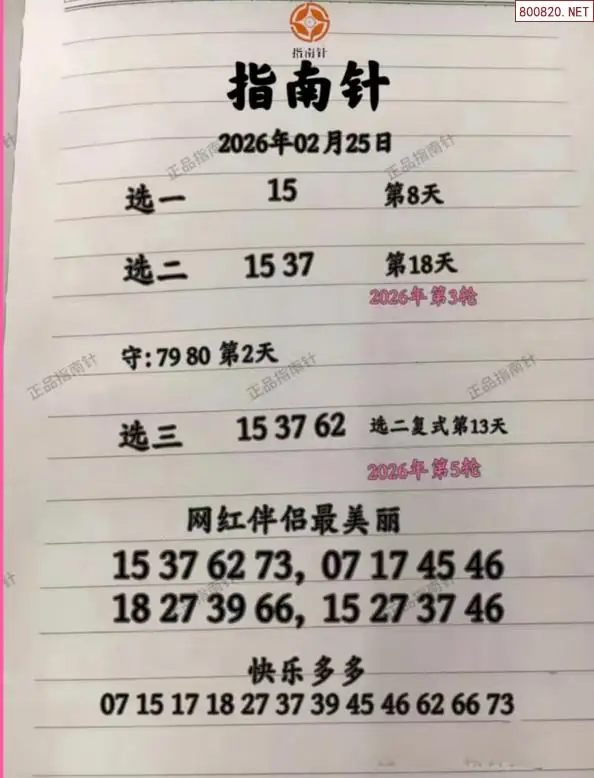 800820.NET
指南针
指南针
2026年02月25日
正品指南针 正品指南针
选一 15 第8天
选二 15 37 第18天
2026年第3轮
守:79 80 第2天
正品指南针 正品指南针 正品指南针
选三 15 37 62 选二复式第13天
2026年第5轮
网红伴侣最美丽
15 37 62 73, 07 17 45 46
18 27 39 66, 15 27 37 46
正品指南针 正品指南针
快乐多多
07 15 17 18 27 37 39 45 46 62 66 73